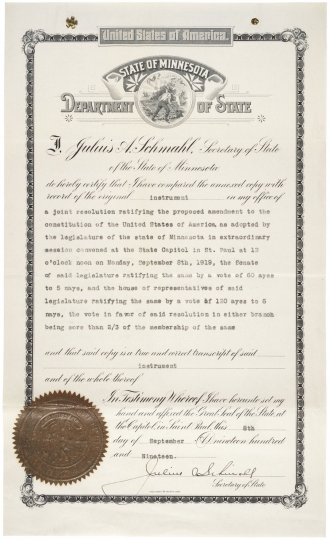 United States of America.
STATE OF MINNESOTA
DEPARTMENT OF STATE
I, Julius A. Schmahl, Secretary of State
of the State of Minnesota
do hereby certify that I have compared the annexed copy with
record of the original instrument in my office of
a joint resolution ratifying the proposed amendment to the
constitution of the United States of America, as adopted by
the legislature of the state of Minnesota in extraordinary
session convened at the State Capitol in St. Paul at 12
o'clock noon on Monday, September 8th, 1919, the Senate
of said legislature ratifying the same by a vote of 60 ayes
to 5 nays, and the house of representatives of said
legislature ratifying the same by a vote of 120 ayes to 6
nays, the vote in favor of said resolution in either branch
being more than 2/3 of the membership of the same
and that said copy is a true and correct transcript of said
instrument
and of the whole thereof
In Testimony Whereof I have hereunto set my
hand and affixed the Great Seal of the State at
the Capitol, in Saint Paul, this 8th
day of September A.D. nineteen hundred
and Nineteen.
Julius A Schmahl
Secretary of State